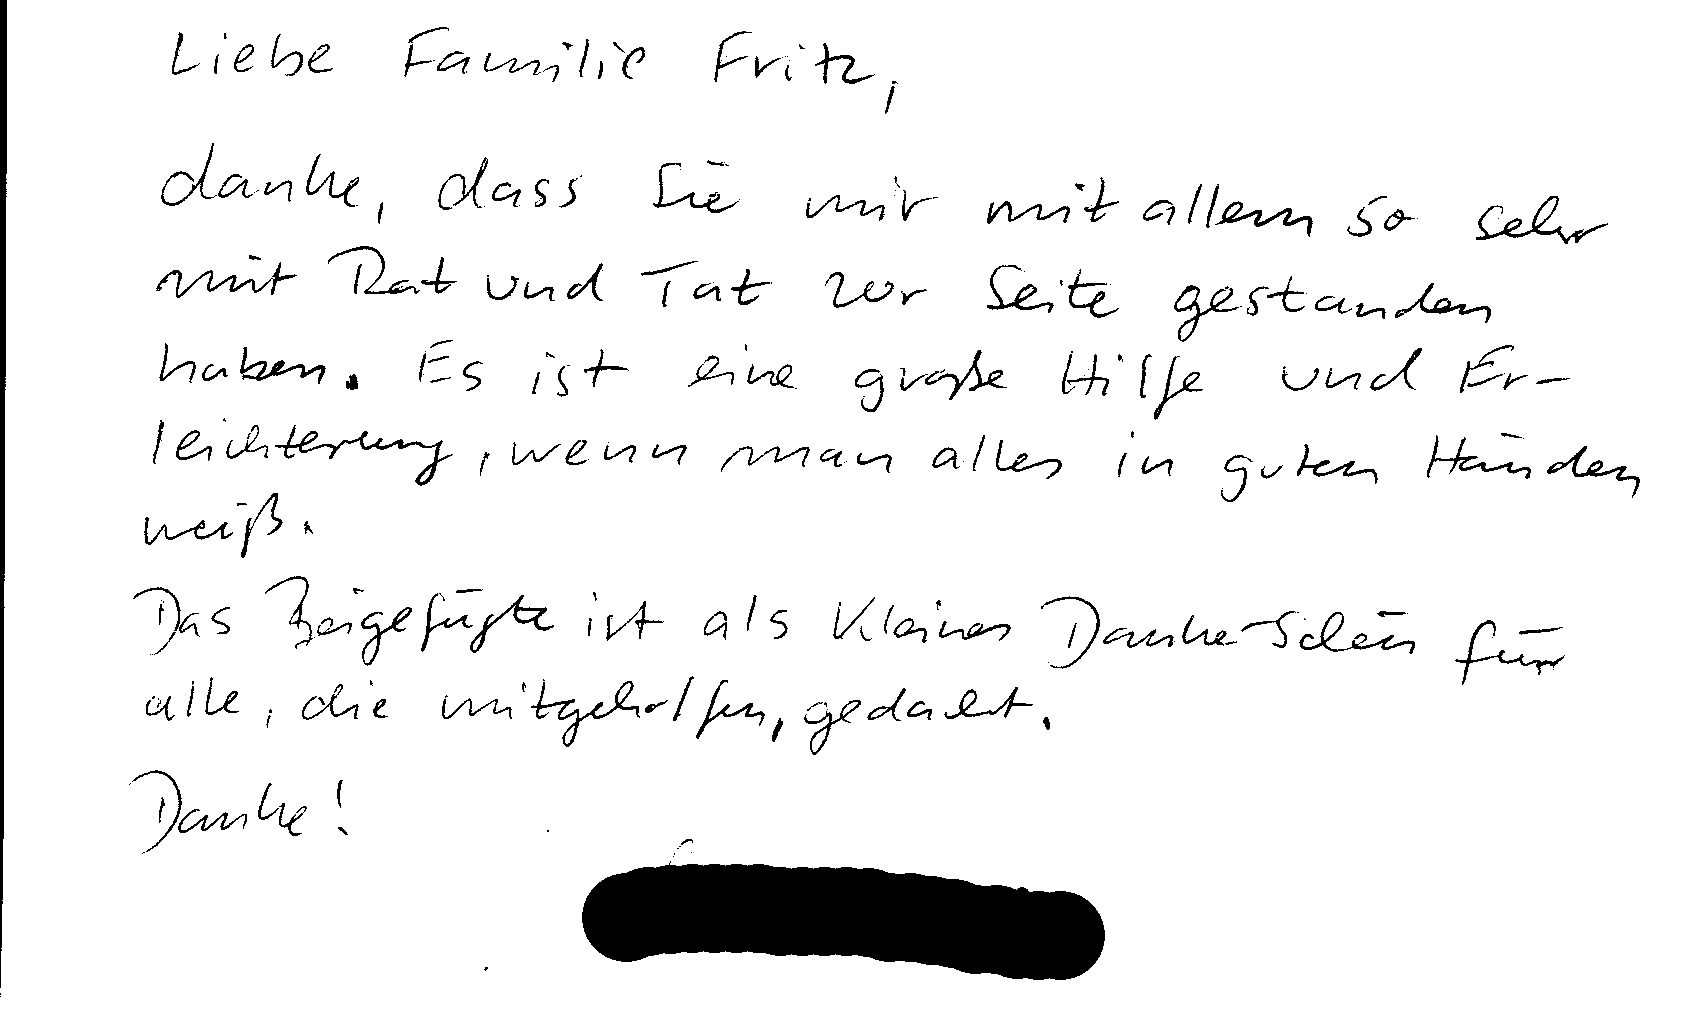 Liebe Familie Fritz,
danke, dass Sie mir mit allem so sehr
mit Rat und Tat zur Seite gestanden
haben. Es ist eine große Hilfe und Er-
leichterung, wenn man alles in guten Händen
weiß.
Das Beigefügte ist als kleines Danke-Schön für
alle, die mitgeholfen, gedacht.
Danke!